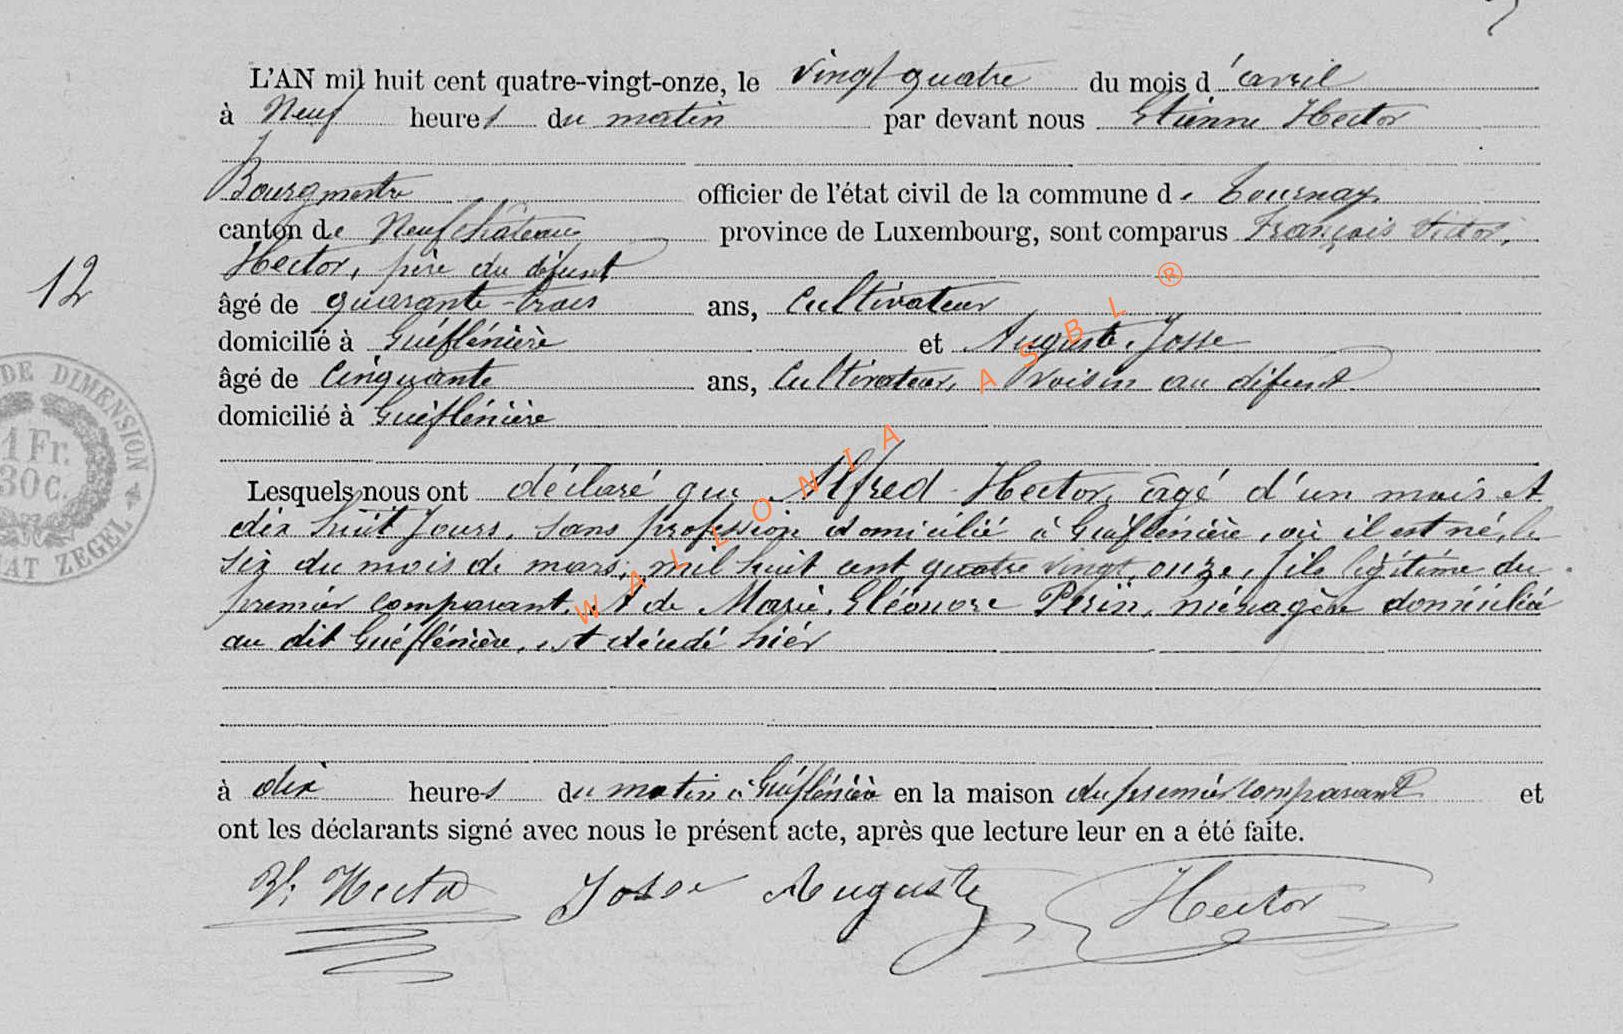 L'AN mil huit cent quatre-vingt-onze, le vingt quatre du mois d'avril
à Neuf heures du matin par devant nous Etienne Hector
Bourgmestre officier de l'état civil de la commune de Tournay
canton de Neufchâteau province de Luxembourg, sont comparus François Victor,
Hector, père du défunt
12
âgé de quarante-trois ans, Cultivateur
domicilié à Gueflénière et Auguste Josse
âgé de Cinquante ans, Cultivateur, Voisin au défunt
domicilié à Gueflénière
DE DIMENSION
1 Fr.
30c.
ZEGEL
Lesquels nous ont déclaré que Alfred Hector, âgé d'un mois et
dix huit jours, sans profession domicilié à Gueflénière, où il est né, le
six du mois de mars, mil huit cent quatre vingt onze, fils légitime du
premier comparant, et de Marie Eléonore Perin, ménagère domiciliée
au dit Gueflénière, est décédé hier
à dix heures du matin à Gueflénière en la maison du premier comparant et
ont les déclarants signé avec nous le présent acte, après que lecture leur en a été faite.
V. Hector Josse Auguste Hector
WALLONIA ASBL ®